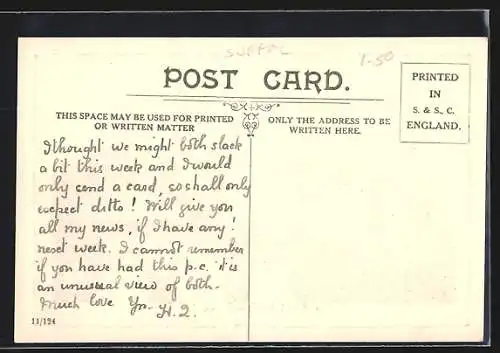 SUFFOL
1-50
POST CARD.
PRINTED
IN
S. & S., C.
ENGLAND.
THIS SPACE MAY BE USED FOR PRINTED
OR WRITTEN MATTER
ONLY THE ADDRESS TO BE
WRITTEN HERE.
I thought we might both slack
a bit this week and I would
only send a card, so shall only
expect ditto! Will give you
all my news, if I have any!
next week. I cannot remember
if you have had this p.c. it is
an unusual view of both.
Much love Yrs.
H.2.
11/124